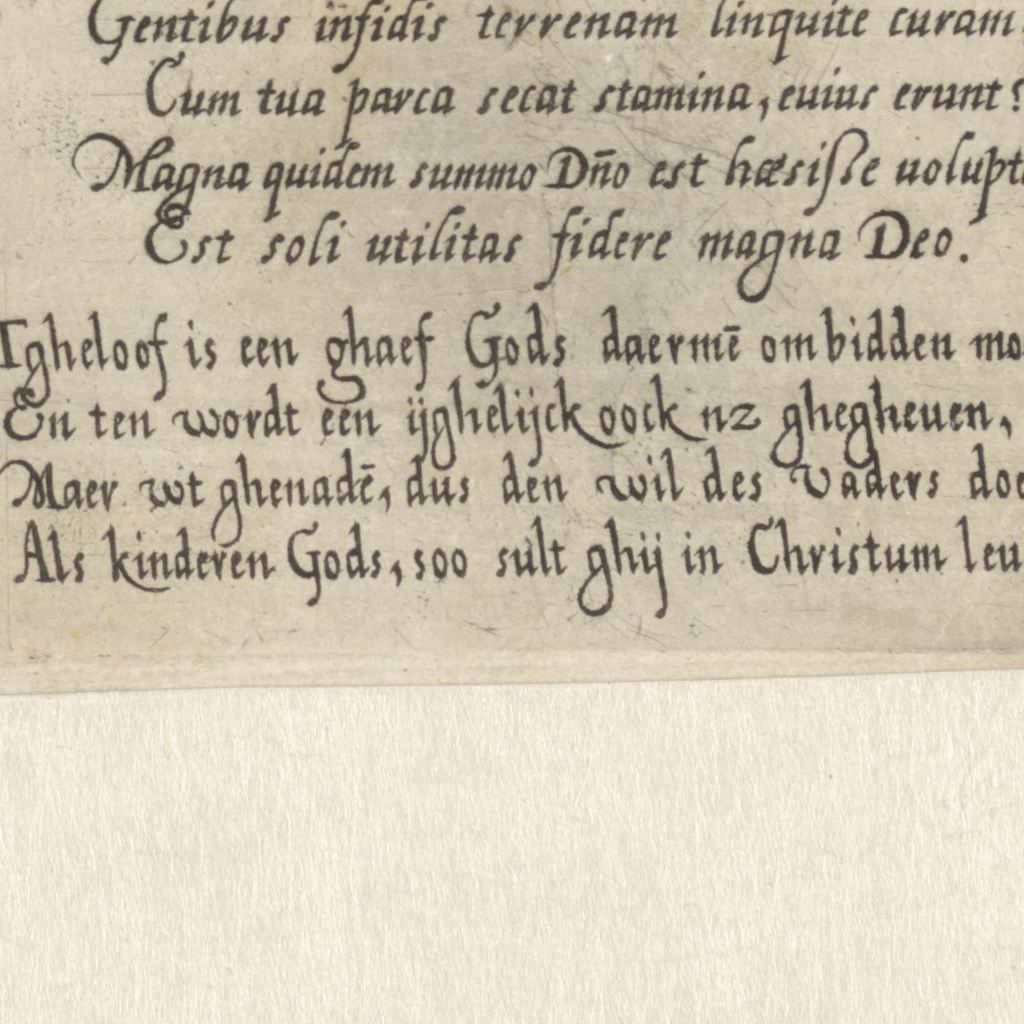 Gentibus infidis terrenam linquite curam
Cum tua parca secat stamina, cuius erunt?
Magna quidem summo Dn̄o est hæsiſſe uolupt
Est soli utilitas fidere magna Deo.
Tgheloof is een ghaef Gods daermē om bidden mo
En ten wordt een ijghelijck oock nz ghegheuen,
Maer wt ghenadē, dus den wil des Vaders doe
Als kinderen Gods, soo sult ghij in Christum leu